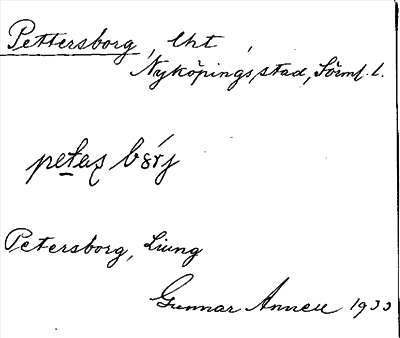 Pettersborg, lht,
Nyköpings stad, Sörml. l.
petas bórj
Petersborg, Ljung
Gunnar Annell 1933